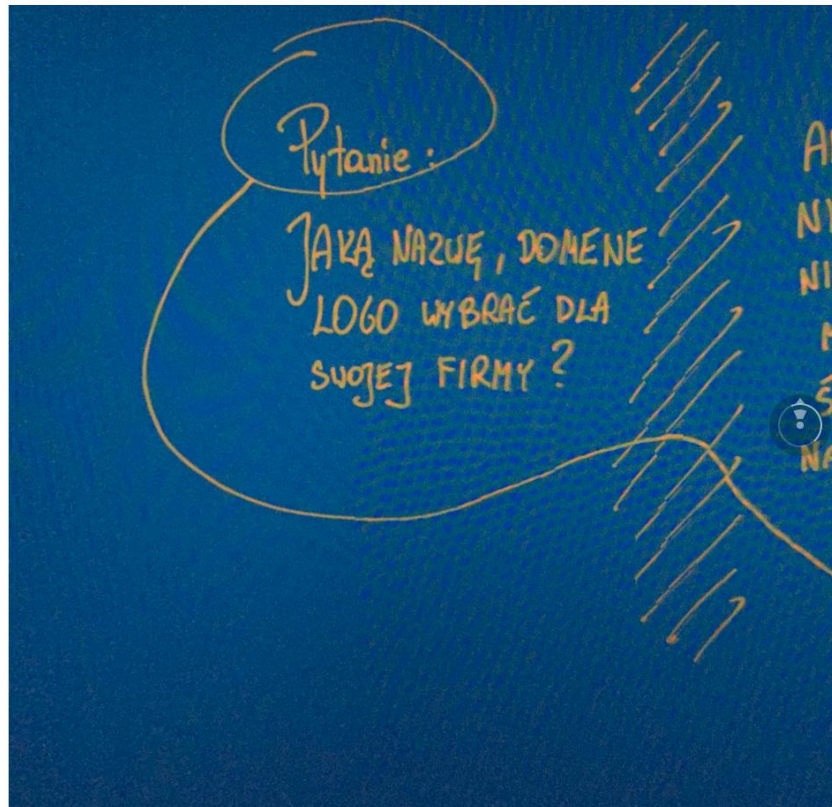 Pytanie:
JAKĄ NAZWĘ, DOMENE
LOGO WYBRAĆ DLA
SWOJEJ FIRMY?